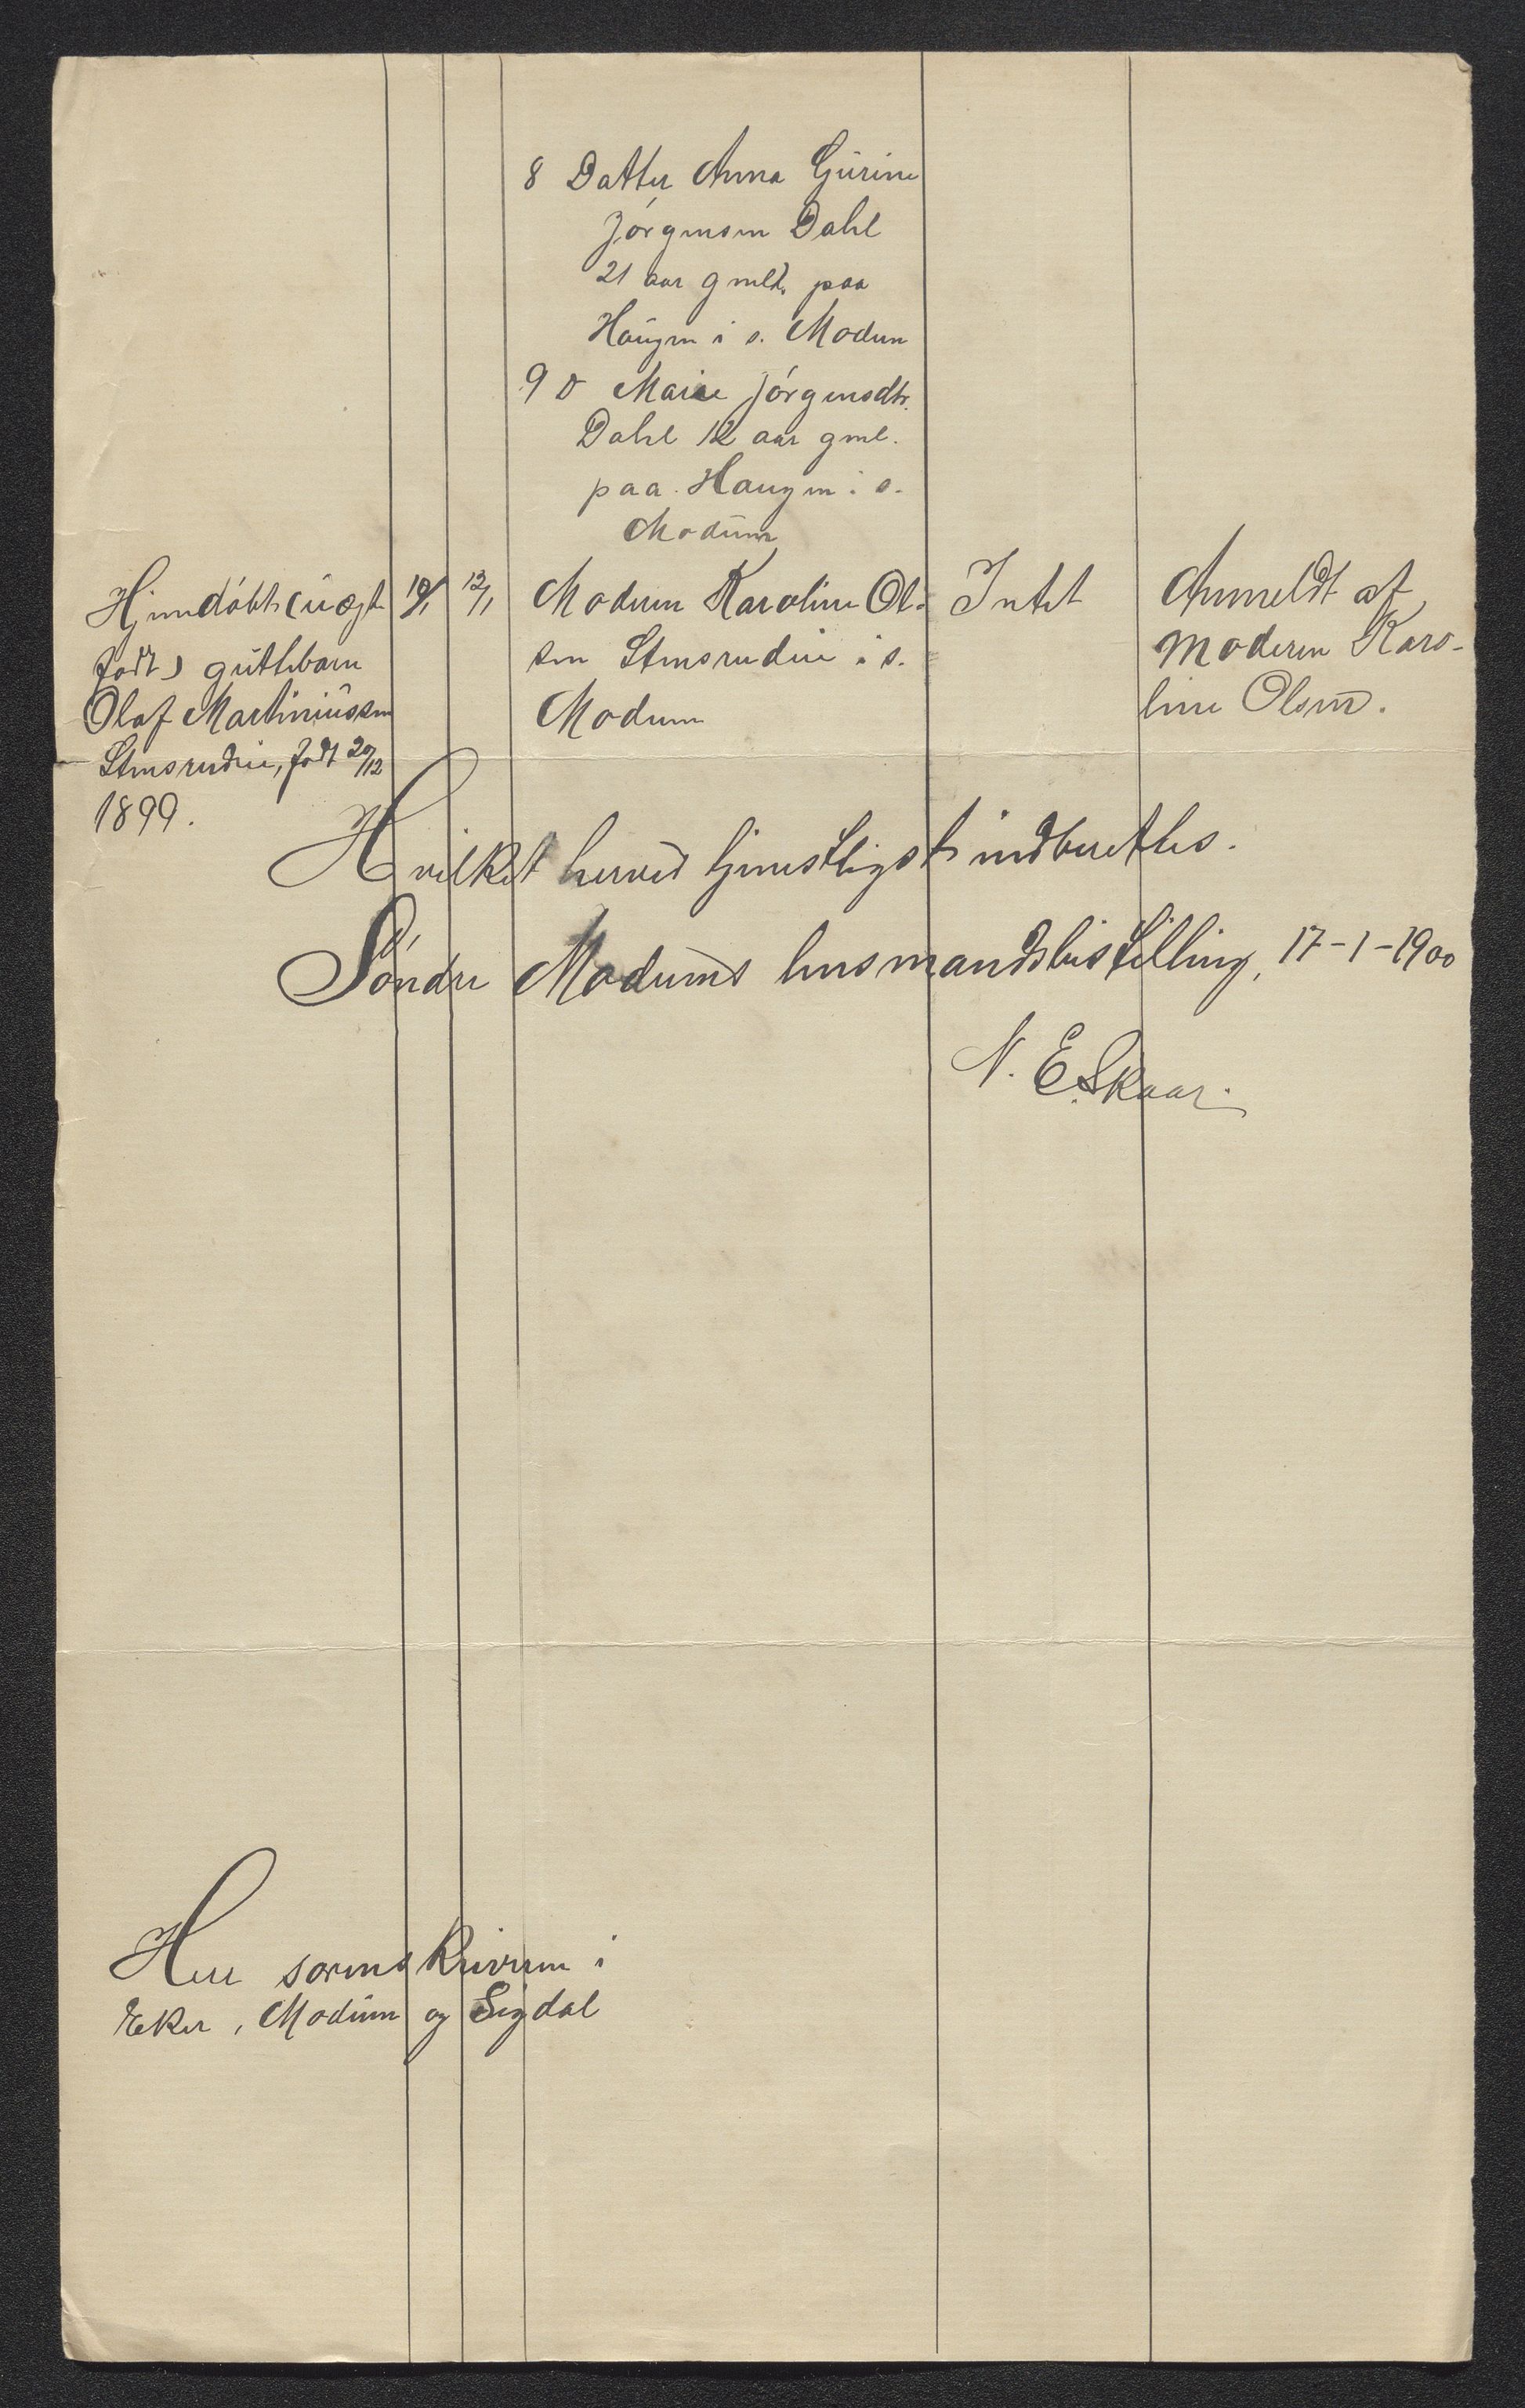 8 Datter Anna Gurine
Jörgensen Dahl
21 aar gmld. paa
Haugen i s. Modum
9 D Marie Jörgensdtr.
Dahl 12 aar gml.
paa Haugen i s.
Modum
Hjemdöbt (uægte
födt) guttebarn
Olaf Martiniussen
Stensrudeie, födt 20/12
1899.
10/1
12/1
Moderen Karoline Ol-
sen Stensrudeie i s.
Modum
Intet
Anmeldt af
Moderen Karo-
line Olsen.
Hvilket herved tjenstligst indberettes.
Söndre Modums lensmandsbestilling, 17-1-1900
N. E. Skaar.
Herr sorenskriveren i
Eker, Modum og Sigdal